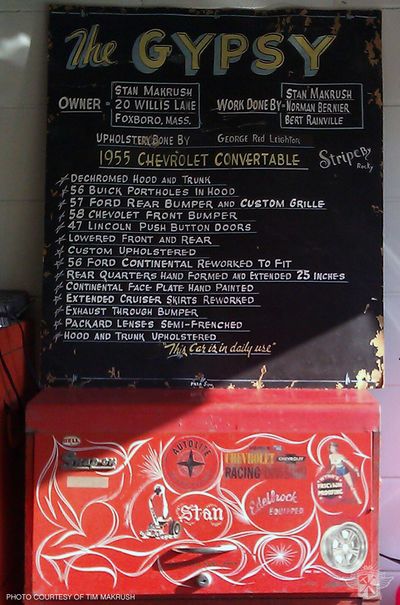 The GYPSY
OWNER - STAN MAKRUSH
20 WILLIS LANE
FOXBORO, MASS.
WORK DONE BY = STAN MAKRUSH
NORMAN BERNIER
BERT RAINVILLE
UPHOLSTERY DONE BY GEORGE Red Leighton
1955 CHEVROLET CONVERTABLE
Striper Rocky
DECHROMED HOOD AND TRUNK
56 BUICK PORTHOLES IN HOOD
57 FORD REAR BUMPER AND CUSTOM GRILLE
58 CHEVOLET FRONT BUMPER
47 LINCOLN PUSH BUTTON DOORS
LOWERED FRONT AND REAR
CUSTOM UPHOLSTERED
56 FORD CONTINENTAL REWORKED TO FIT
REAR QUARTERS HAND FORMED AND EXTENDED 25 INCHES
CONTINENTAL FACE PLATE HAND PAINTED
EXTENDED CRUISER SKIRTS REWORKED
EXHAUST THROUGH BUMPER
PACKARD LENSES SEMI-FRENCHED
HOOD AND TRUNK UPHOLSTERED
"This Car is in daily use"
BELL
Snap-on
AUTOLITE
CHEVROLET CHEVROLET
RACING
Stan
Edelbrock
EQUIPPED
FRICTION
PROOFING
PHOTO COURTESY OF TIM MAKRUSH